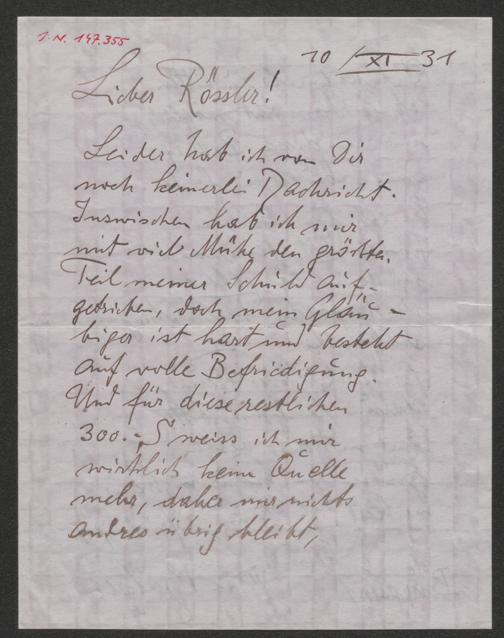 J.N. 147.355
10/XI 31
Lieber Rössler!
Leider hab ich von Dir
noch keinerlei Nachricht.
Inzwischen hab ich mir
mit viel Mühe den größten
Teil meiner Schuld auf-
getrieben, doch mein Gläu-
biger ist hart und besteht
auf volle Befriedigung.
Und für diese restlichen
300.- S weiss ich mir
wirklich keine Quelle
mehr, daher mir nichts
andres übrig bleibt,